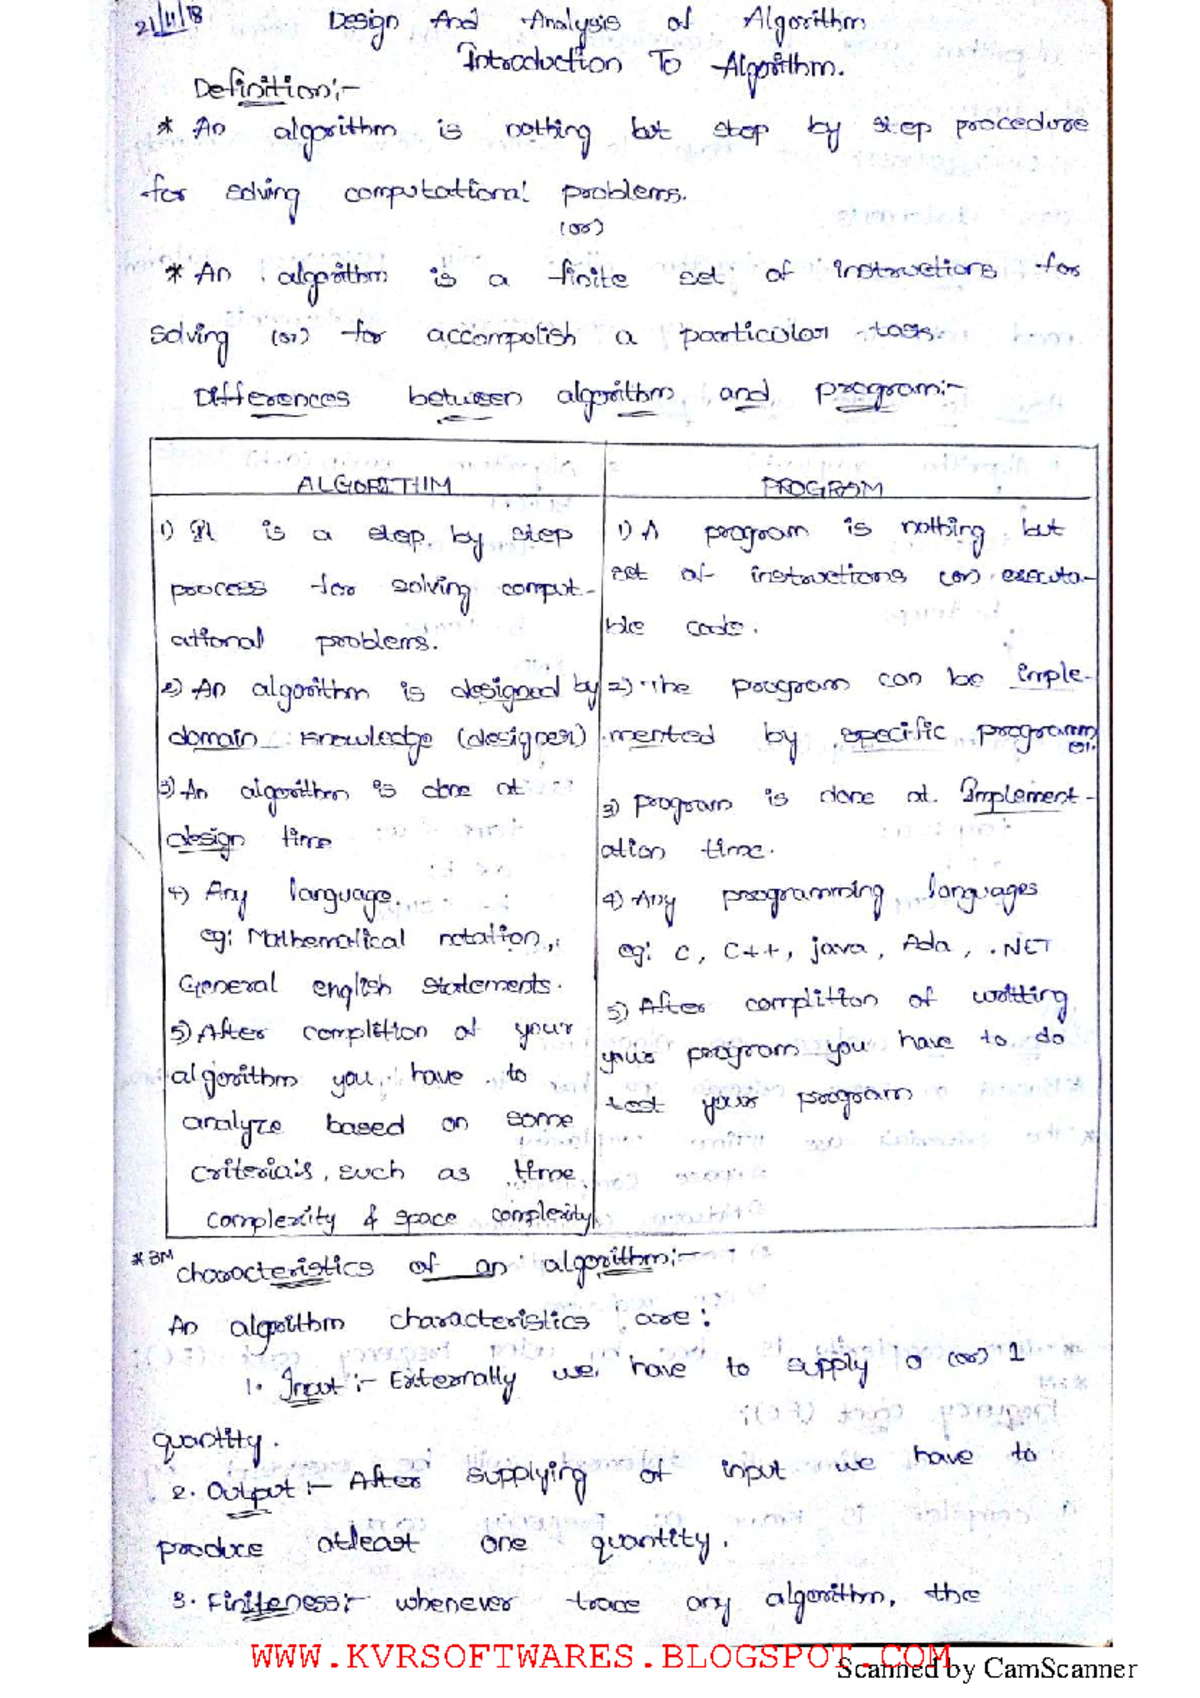 21/11/18
Design And Analysis of Algorithm
Introduction To Algorithm.
Definition:-
* An algorithm is nothing but step by step procedure
for solving computational problems.
(or)
* An algorithm is a finite set of instructions for
solving (or) for accompolish a particular task.
Differences between algorithm and program:-
ALGORITHM
1) It is a step by step
process for solving comput-
ational problems.
2) An algorithm is designed by
domain knowledge (designer)
3) An algorithm is done at
design time
4) Any language.
eg: Mathematical notation,
General english statements.
5) After complition of your
algorithm you have to
analyze based on some
criteria's, such as time
complexity & space complexity
PROGRAM
1) A program is nothing but
set of instructions (or) executa-
ble code.
2) The program can be imple-
mented by specific programm
er.
3) program is done at Implement-
ation time.
4) Any programming languages
eg: C, C++, java, Ada, .NET
5) After complition of writting
your program you have to do
test your program
* 3M
characteristics of an algorithm:-
An algorithm characteristics are:
1. Input :- Externally we have to supply 0 (or) 1
quantity.
2. Output :- After supplying of input we have to
produce atleast one quantity.
3. Finiteness:- whenever trace any algorithm, the
WWW.KVRSOFTWARES.BLOGSPOT.COM
Scanned by CamScanner